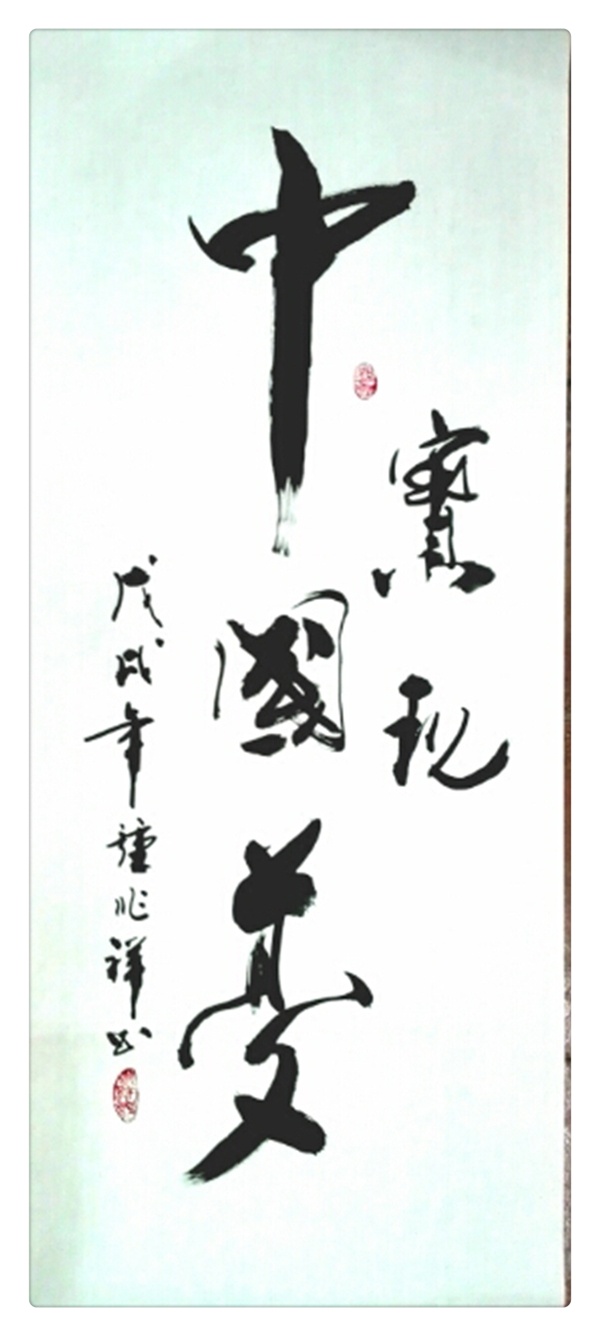 實現
中國夢
戊戌年 兆祥书